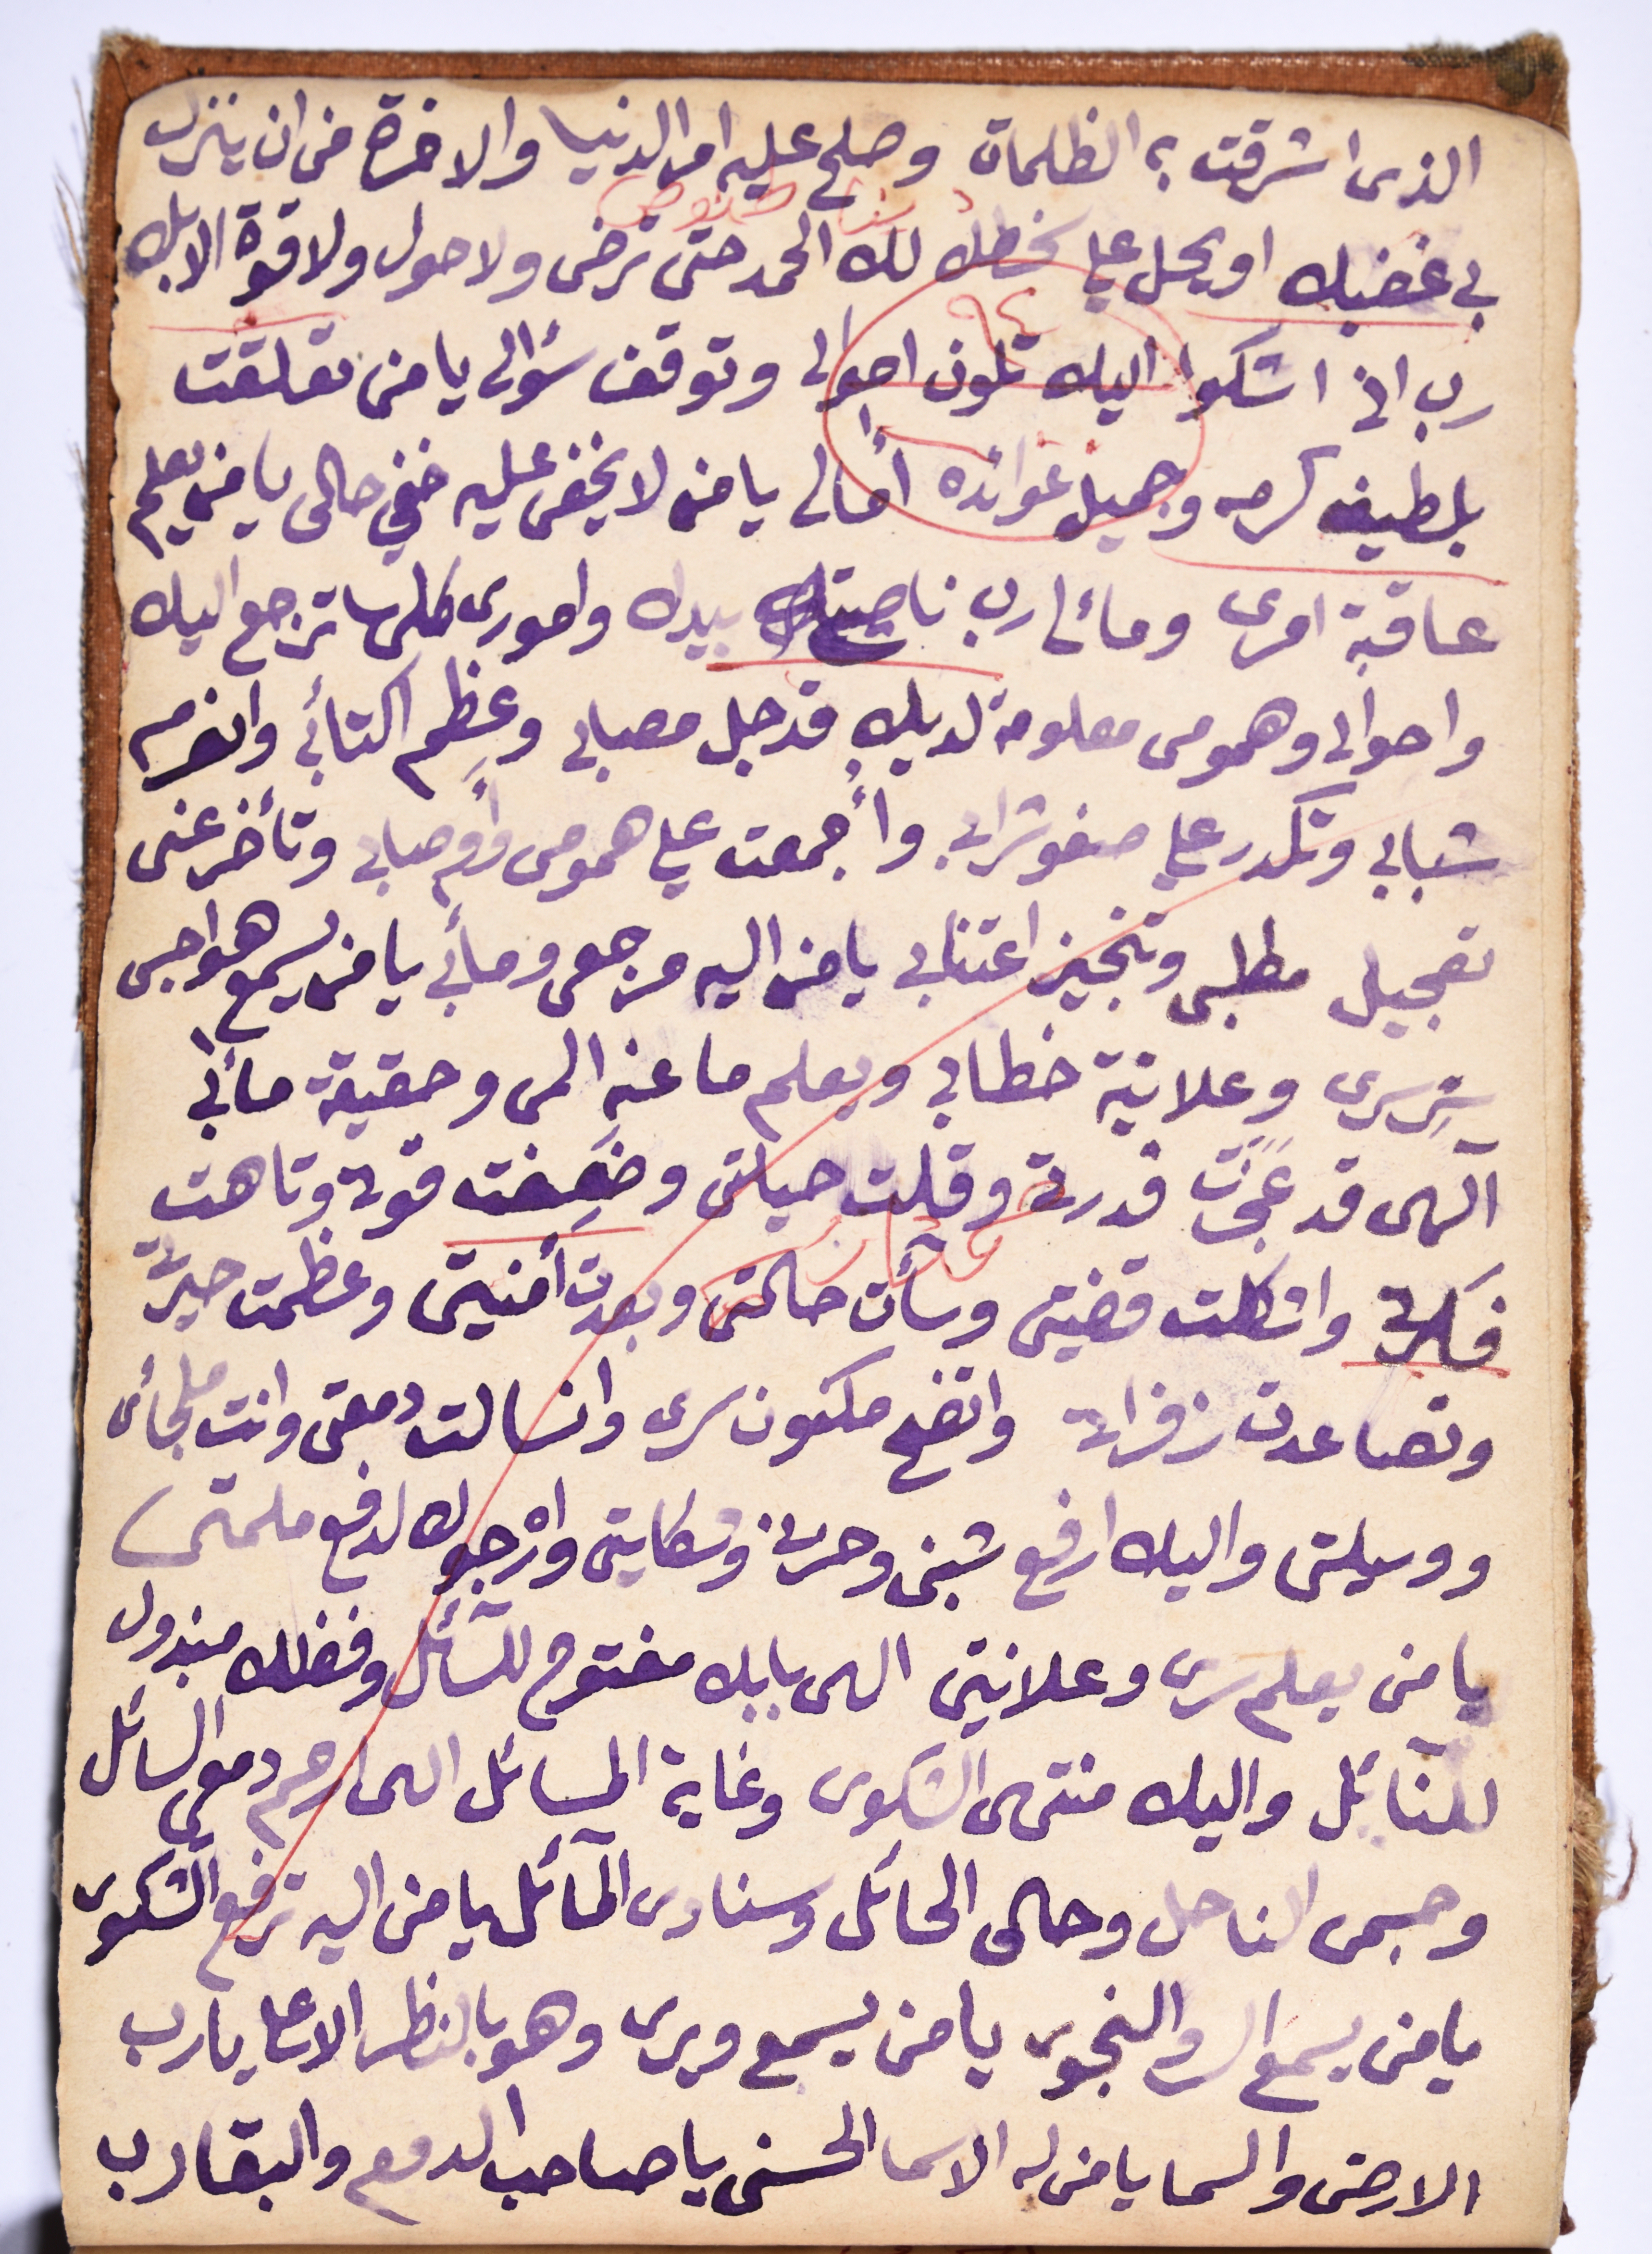 الذى اشرقت به الظلمات وصلح عليه امر الدنيا والاخرة من ان ينزل
بى غضبك او يحل على سخطك لك الحمد حتى ترضى ولا حول ولا قوة الا بك
رب انى اشكوا اليك تلون احوالى وتوقف سؤالى يا من تعلقت
بلطيف كرمه وجميل عوائده امالى يا من لا يخفى عليه خفي حالى يا من يعلم
عاقبة امرى ومائلى رب ناصيتى بيدك وامورى كلها ترجع اليك
واحوالى وهمومى معلومة لديك قد جل مصابى وعظم اكتائبى وانصرم
شبابى وتكدر على صفو شرابى وأجمعت على همومى واوصابى وتأخر عنى
تعجيل مطلبى وتنجيز اعتنابى يا من اليه مرجعى ومأبى يا من يسمع هواجس
سِرِّى وعلانية خطابى ويعلم ما عند المى وحقيقة مأبى
آلهى قد عَجَزَت قدرتى وقلت حيلتى وضَعِفت قوتى وتاهت
فكرتى واشكلت قضيتى وسآت حالتى وبعدت أمنيتى وعظمت حيرتى
وتصاعدت زفراتى واتضح مكنون سرى وانسالت دمعتى وانت ملجائى
ووسيلتى واليك ارفع شبنى وحزنى وشكايتى وارْجوك لدفع ملمتى
يا من يعلم سرى وعلانيتى الهى بابك مفتوح للسآئل وفضلك مبذول
للنآئل واليك منتهى الشكوى وغاية المسائل الهى ارحم دمعى السائل
وجسمى الناحل وحالى الحائل وسنادى المآئل يا من اليه ترفع الشكوى
يا من يسمع السر والنجوى يا من يسمع ويرى وهو بالنظر الاعلى يا رب
الارض والسما يا من له الاسما الحسنى يا صاحب الدمع والبقا رب